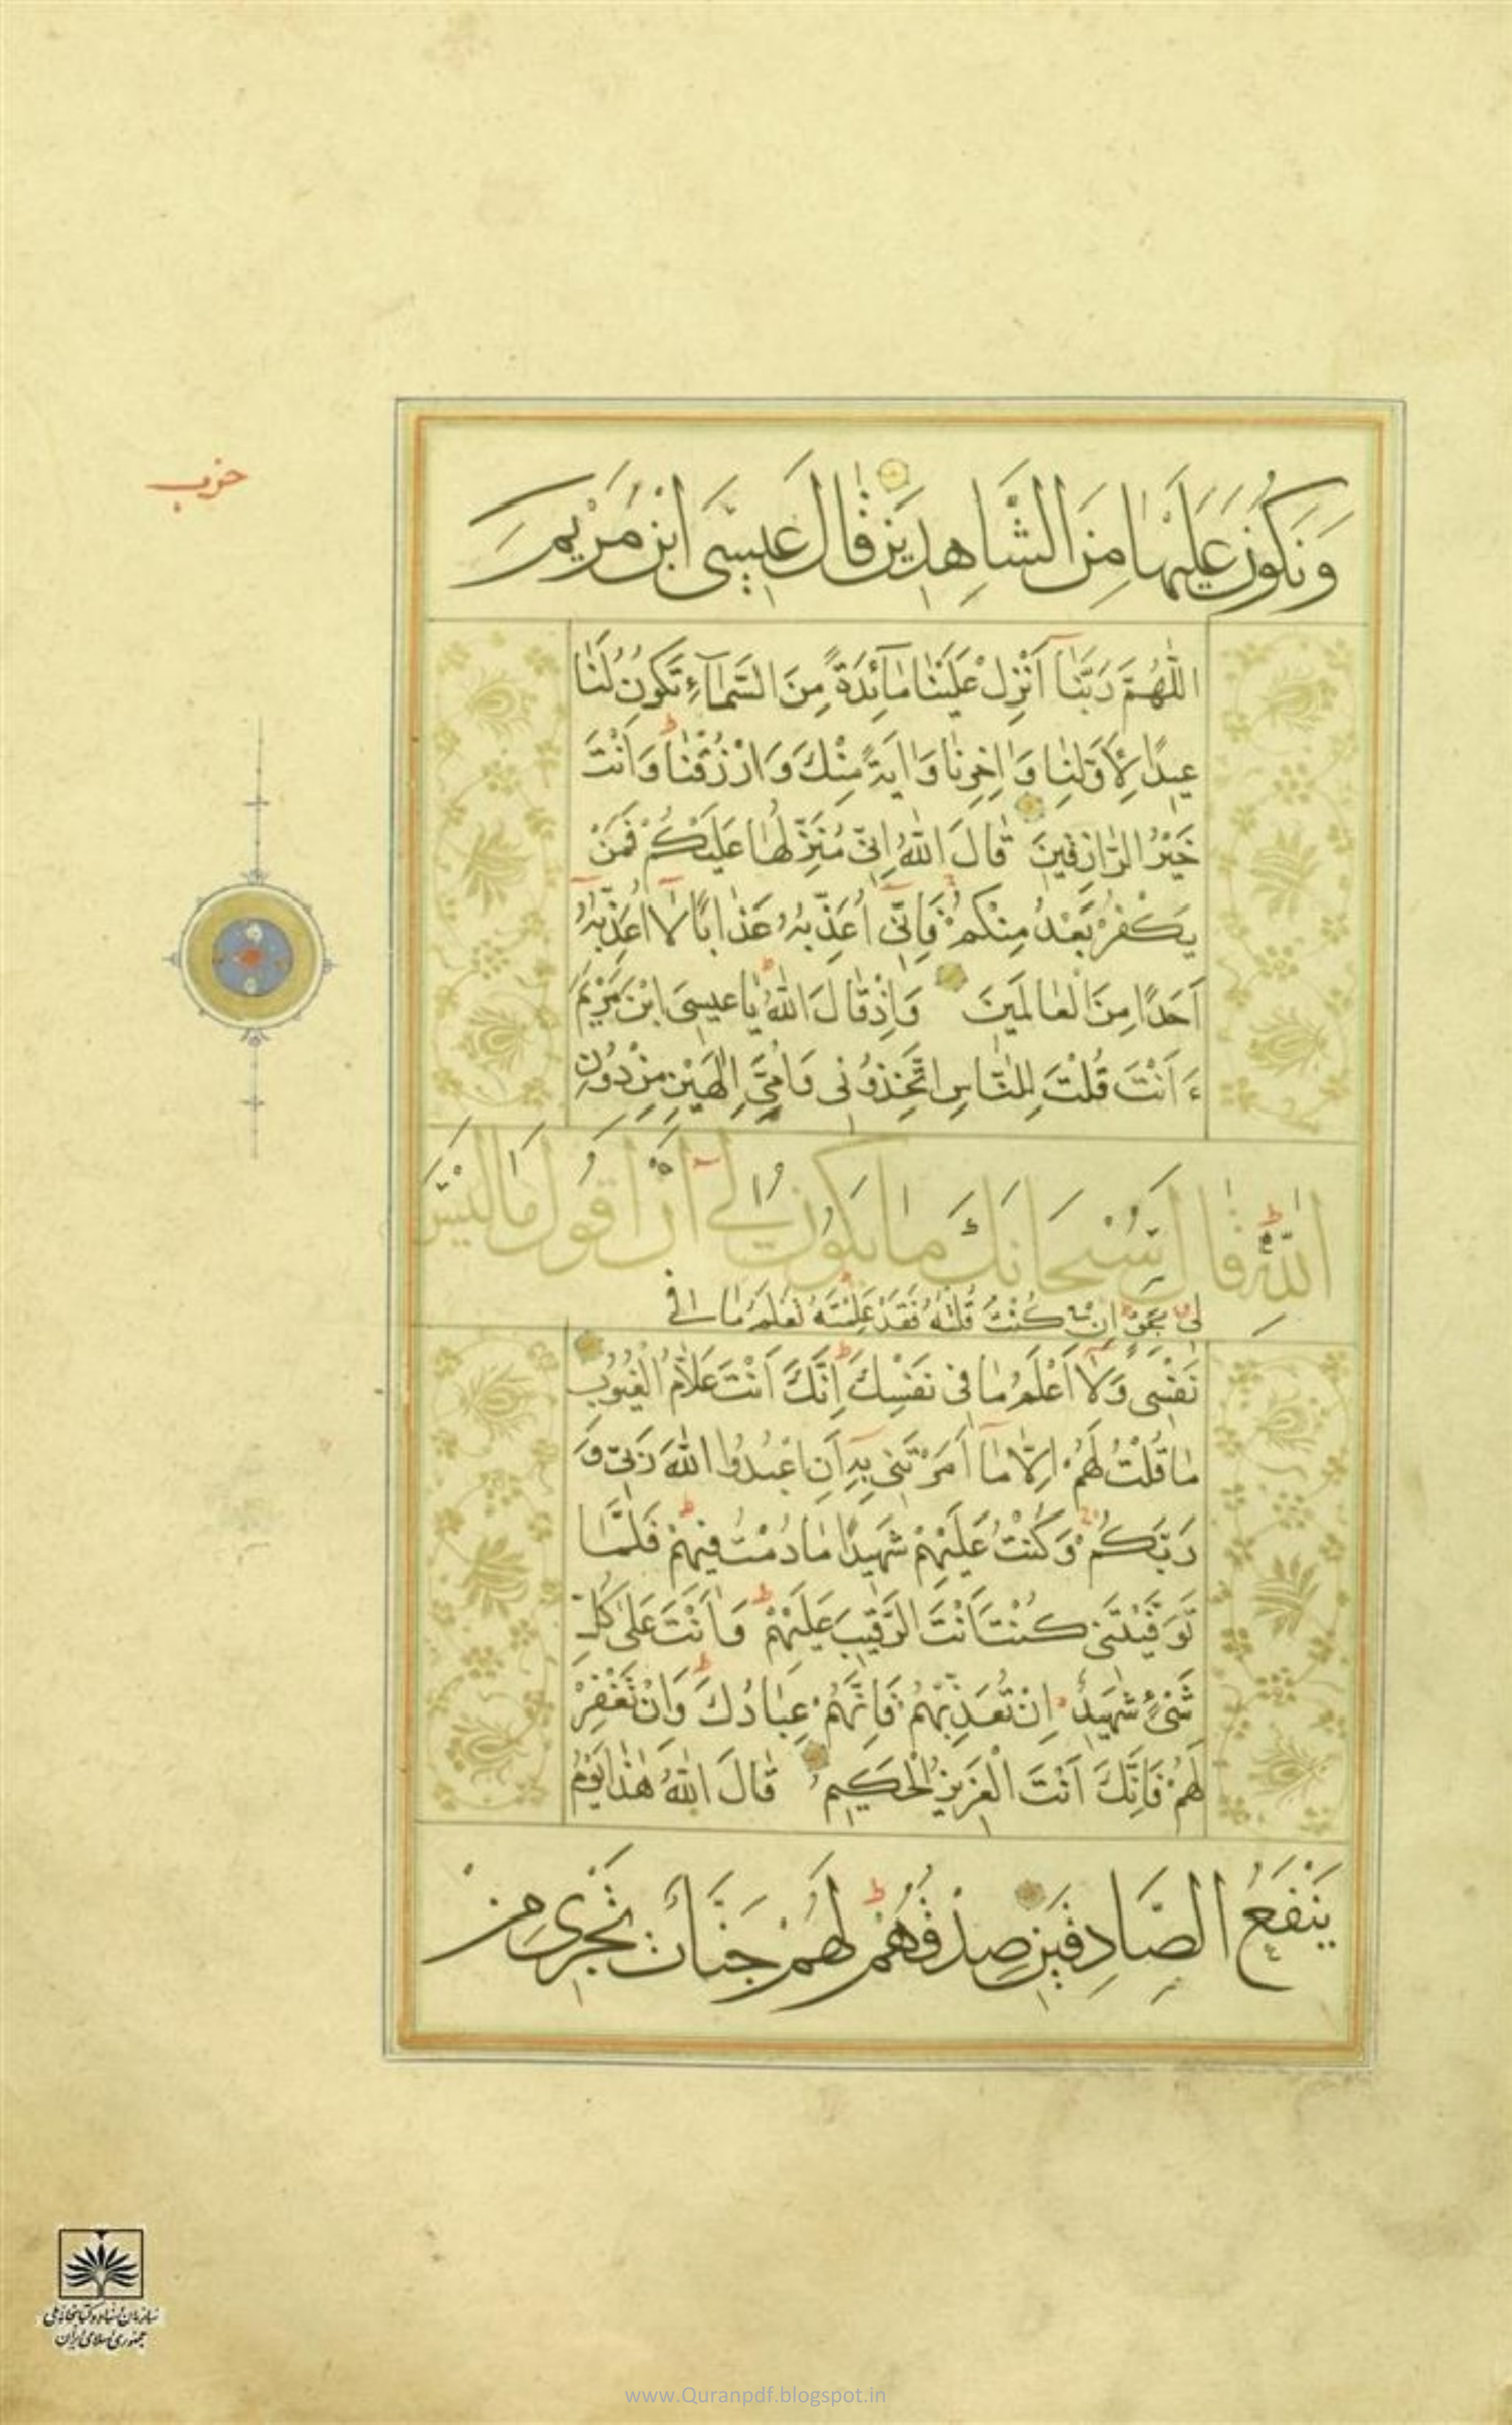 حزب
وَنَكُونَ عَلَيْهَا مِنَ الشَّاهِدِينَ قَالَ عِيسَى ابْنُ مَرْيَمَ
اللّٰهُمَّ رَبَّنَا أَنْزِلْ عَلَيْنَا مَآئِدَةً مِنَ السَّمَآءِ تَكُونُ لَنَا
عِيدًا لِاَوَّلِنَا وَاٰخِرِنَا وَاٰيَةً مِنْكَ وَارْزُقْنَا وَاَنْتَ
خَيْرُ الرَّازِقِينَ قَالَ اللّٰهُ اِنِّي مُنَزِّلُهَا عَلَيْكُمْ فَمَنْ
يَكْفُرْ بَعْدُ مِنْكُمْ فَاِنِّي اُعَذِّبُهُ عَذَابًا لَا اُعَذِّبُهُ
اَحَدًا مِنَ الْعَالَمِينَ وَاِذْ قَالَ اللّٰهُ يَا عِيسَى ابْنَ مَرْيَمَ
ءَاَنْتَ قُلْتَ لِلنَّاسِ اتَّخِذُونِي وَاُمِّيَ اِلٰهَيْنِ مِنْ دُونِ
اللّٰهِ قَالَ سُبْحَانَكَ مَا يَكُونُ لِي اَنْ اَقُولَ مَا لَيْسَ
لِي بِحَقٍّ اِنْ كُنْتُ قُلْتُهُ فَقَدْ عَلِمْتَهُ تَعْلَمُ مَا فِي
نَفْسِي وَلَا اَعْلَمُ مَا فِي نَفْسِكَ اِنَّكَ اَنْتَ عَلَّامُ الْغُيُوبِ
مَا قُلْتُ لَهُمْ اِلَّا مَا اَمَرْتَنِي بِهِ اَنِ اعْبُدُوا اللّٰهَ رَبِّي وَ
رَبَّكُمْ وَكُنْتُ عَلَيْهِمْ شَهِيدًا مَا دُمْتُ فِيهِمْ فَلَمَّا
تَوَفَّيْتَنِي كُنْتَ اَنْتَ الرَّقِيبَ عَلَيْهِمْ وَاَنْتَ عَلٰى كُلِّ
شَيْءٍ شَهِيدٌ اِنْ تُعَذِّبْهُمْ فَاِنَّهُمْ عِبَادُكَ وَاِنْ تَغْفِرْ
لَهُمْ فَاِنَّكَ اَنْتَ الْعَزِيزُ الْحَكِيمُ قَالَ اللّٰهُ هٰذَا يَوْمُ
يَنْفَعُ الصَّادِقِينَ صِدْقُهُمْ لَهُمْ جَنَّاتٌ تَجْرِي مِنْ
سازمان اسناد و کتابخانه ملی
جمهوری اسلامی ایران
www.Quranpdf.blogspot.in